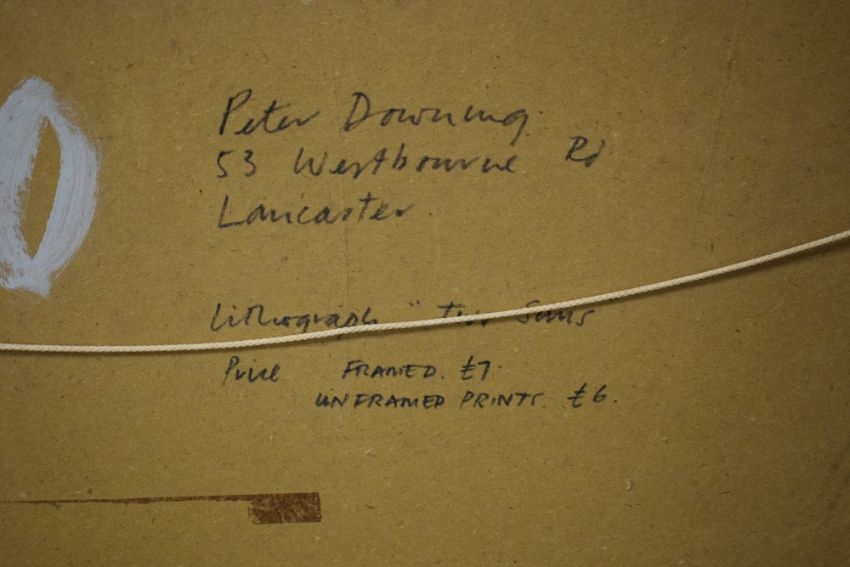 Peter Downing.
53 Westbourne Rd
Lancaster
Lithograph " Two Suns
Price FRAMED. £7.
UNFRAMED PRINTS. £6.